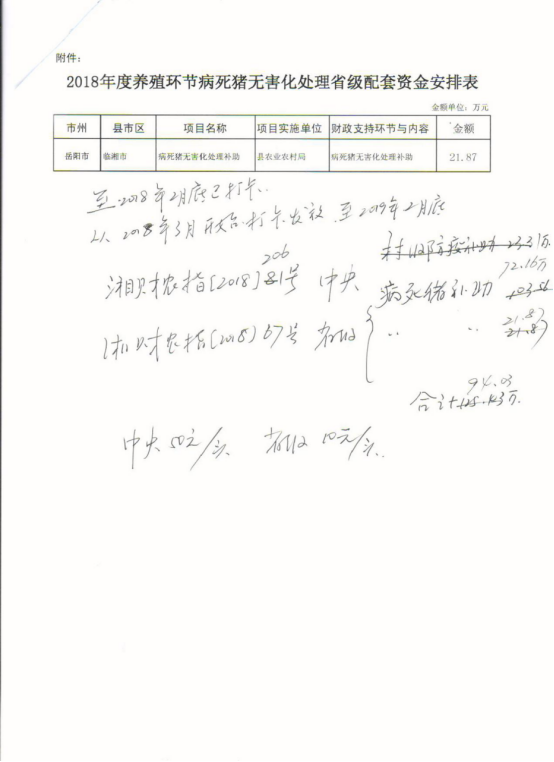 附件：
2018年度养殖环节病死猪无害化处理省级配套资金安排表
金额单位：万元
市州 县市区 项目名称 项目实施单位 财政支持环节与内容 金额
岳阳市 临湘市 病死猪无害化处理补助 县农业农村局 病死猪无害化处理补助 21.87
至2018年2月底已打卡.
从2018年3月开始打卡发放 至2019年2月底
村级防疫补助 23.31万
206
72.16万
湘财农指[2018]81号 中央 病死猪补助
21.87
湘财农指(2018)67号 省级 〃 〃 21.87
94.03
合计 万.
中央50元/头 省级10元/头.